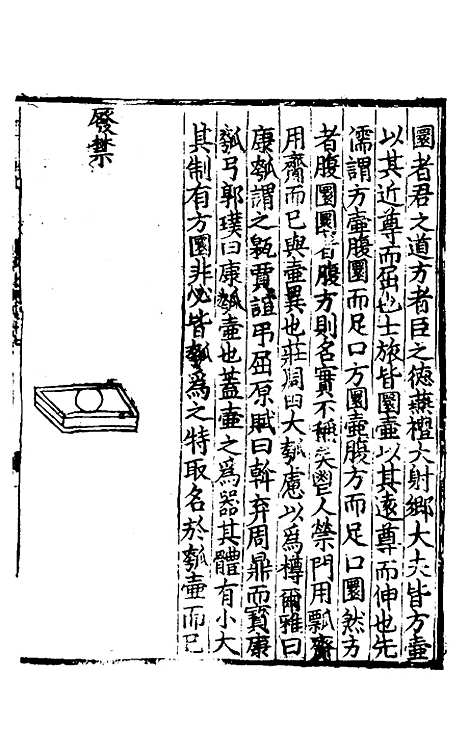 圜者君之道方者臣之徳燕禮大射鄉大夫皆方壷
以其近尊而屈也士旅皆圜壷以其遠尊而伸也先
儒謂方壷腹圜而足口方圜壷腹方而足口圜然方
者腹圜圜者腹方則名實不稱矣鬯人禜門用瓢齎
用齎而已與壷異也莊周曰大瓠慮以為樽爾雅曰
康瓠謂之甈賈誼弔屈原賦曰斡弃周鼎而寳康
瓠芎郭璞曰康瓠壷也蓋壷之為器其體有小大
其制有方圜非必皆瓠為之特取名於瓠壷而已
廢禁